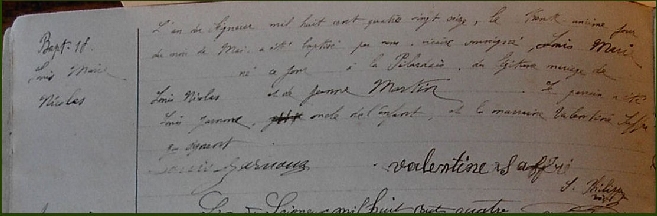 Bapt. 18.
Louis Marie
Nicolas
L'an du Seigneur mil huit cent quatre vingt seize, le Trente unième jour
du mois de Mai, a été baptisé par nous, vicaire soussigné, Louis Marie
né ce jour à la du légitime mariage de
Louis Nicolas et de Jeanne Martin. Le parrain a été
Louis oncle de l'enfant, et la marraine Valentine
qui signent
Valentine
mil huit cent quatre